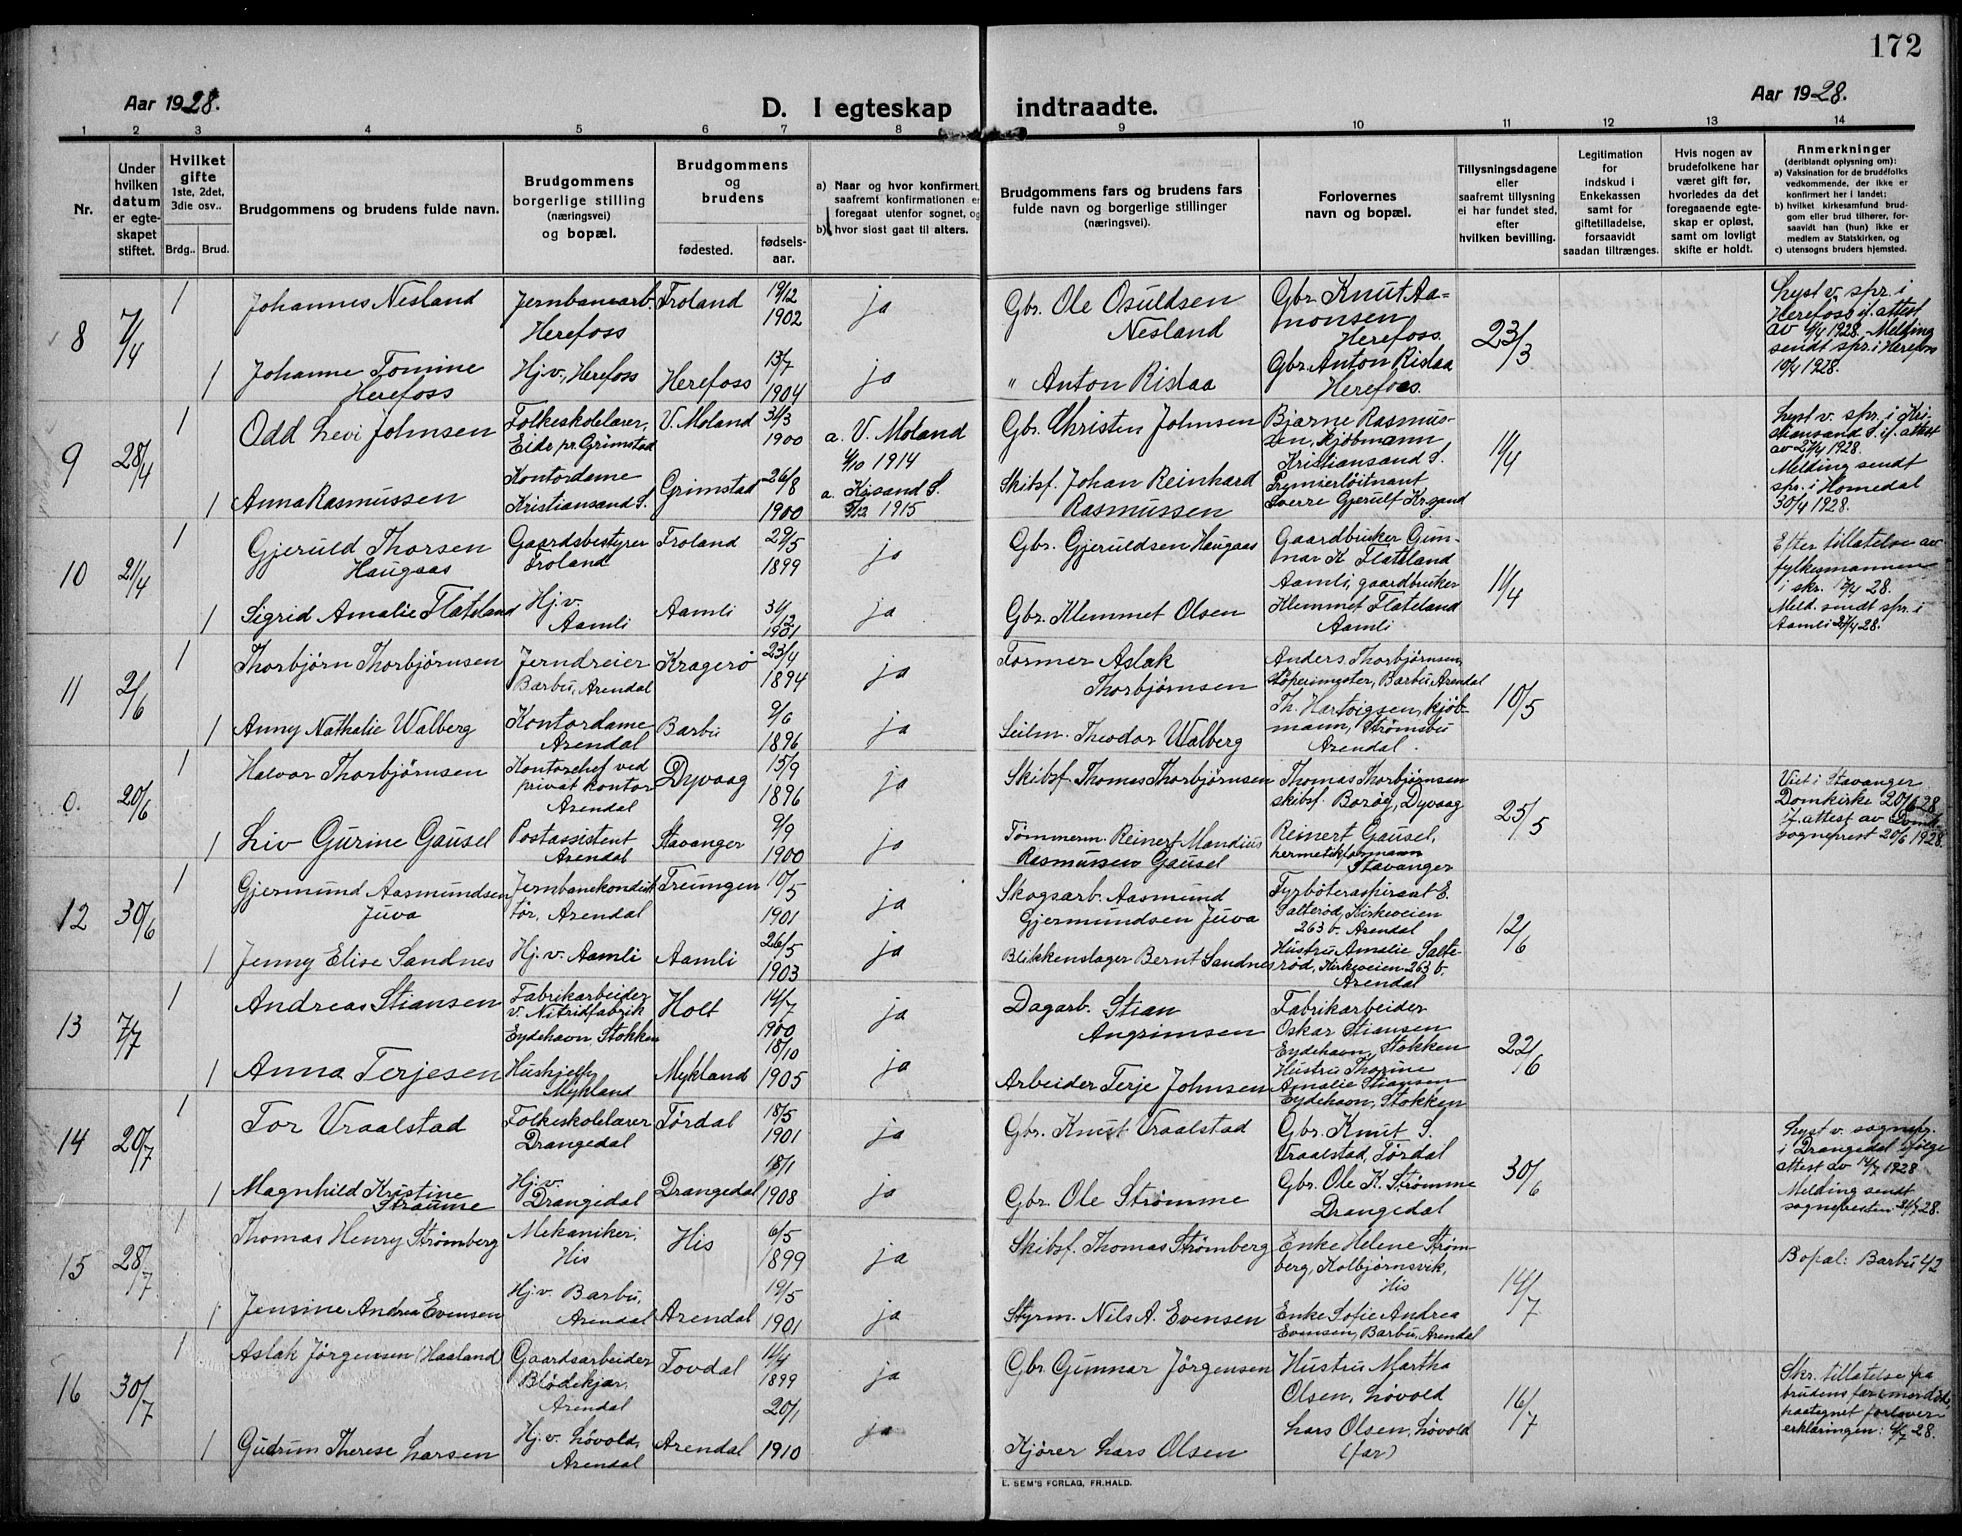 172
Aar 1928.
D. I egteskap indtraadte.
Aar 1928.
1 2 3 4 5 6 7 8 9 10 11 12 13 14
Nr.
Under hvilken datum er egteskapet stiftet.
Hvilket gifte
1ste, 2det, 3die osv..
Brdg.. Brud.
Brudgommens og brudens fulde navn.
Brudgommens borgerlige stilling (næringsvei) og bopæl.
Brudgommens og brudens
fødested.
fødselsaar.
a) Naar og hvor konfirmert, saafremt konfirmationen er foregaat utenfor sognet, og
b) hvor sidst gaat til alters.
Brudgommens fars og brudens fars fulde navn og borgerlige stillinger (næringsvei).
Forlovernes navn og bopæl.
Tillysningsdagene eller saafremt tillysning ei har fundet sted, efter hvilken bevilling.
Legitimation for indskud i Enkekassen samt for giftetilladelse, forsaavidt saadan tiltrænges.
Hvis nogen av brudefolkene har været gift før, hvorledes da det foregaaende egteskap er opløst, samt om lovligt skifte er holdt.
Anmerkninger
(deriblandt oplysning om):
a) Vaksination for de brudefolks vedkommende, der ikke er konfirmert her i landet;
b) hvilket kirkesamfund brudgom eller brud tilhører, forsaavidt han (hun) ikke er medlem av Statskirken, og
c) utensogns bruders hjemsted.
8 7/4 1 Johannes Nesland Jernbanearb. Herefoss Froland 19/12 1902 ja Gbr. Ole Osuldsen Nesland Gbr. Knut Aamonsen Herefoss. 23/3 Lyst v. spr. i Herefoss if. attest av 4/4 1928. Melding sendt spr. i Herefoss 10/4 1928.
1 Johanne Tomine Herefoss Hj.v., Herefoss Herefoss 13/7 1904 ja " Anton Risdaa Gbr. Anton Risdaa Herefoss.
9 28/4 1 Odd Levi Johnsen Folkeskolelærer, Eide pr. Grimstad V. Moland 31/3 1900 a. V. Moland 4/10 1914 Gbr. Christen Johnsen Bjarne Rasmussen, Kjøbmann Kristiansand S. 11/4 Lyst v. spr. i Kristiansand S. if. attest av 27/4 1928. Melding sendt spr. i Homedal 30/4 1928.
1 Anna Rasmussen Kontordame Kristiansand S. Grimstad 26/8 1900 a. Krsand S. 5/12 1915 Skibsf. Johan Reinhard Rasmussen Premierløitnant Sverre Gjerulf Krsand
10 21/4 1 Gjeruld Thorsen Haugaas Gaardsbestyrer Froland Froland 29/5 1899 ja Gbr. Gjeruldsen Haugaas Gaardbruker Gunnar K Flateland Aamli, gaardbruker 11/4 Efter tillatelse av fylkesmannen i skr. 17/4 28. Meld. sendt spr. i Aamli 27/4 28.
1 Sigrid Amalie Flateland Hj.v. Aamli Aamli 31/12 1901 ja Gbr. Klemmet Olsen Klemmet Flateland Aamli
11 2/6 1 Thorbjørn Thorbjørnsen Jerndreier Barbu, Arendal Kragerø 23/4 1894 ja Former Aslak Thorbjørnsen Anders Thorbjørnsen, støperimester, Barbu Arendal 10/5
1 Anny Nathalie Walberg Kontordame Arendal Barbu 9/6 1896 ja Seilm. Theodor Walberg Th. Hartvigsen, kjøbmann, Strømsbu Arendal.
0. 20/6 1 Halvor Thorbjørnsen Kontorchef ved privat kontor Arendal Dyvaag 15/9 1896 ja Skibsf. Thomas Thorbjørnsen Thomas Thorbjørnsen skibsf. Borøy, Dyvaag 25/5 Viet i Stavanger Domkirke 20/6 28 if. attest av Domsogneprest 20/6 1928.
1 Liv Gurine Gausel Postassistent Arendal Stavanger 9/9 1900 ja Tømmerm. Reinert Mandius Rasmussen Gausel Reinert Gausel, hermetikformann Stavanger
12 30/6 1 Gjermund Aasmundsen Juva Jernbanekonduktør, Arendal Treungen 10/5 1901 ja Skogsarb. Aasmund Gjermundsen Juva Fyrbøteraspirant E. Salterød, Kirkeveien 263 b. Arendal 12/6
1 Jenny Elise Sandnes Hj. v. Aamli Aamli 26/5 1903 ja Blikkenslager Bernt Sandnes Hustru Amalie Salterød, Kirkeveien 263 b, Arendal
13 7/7 1 Andreas Stiansen Fabrikarbeider v. Nitridfabrik Eydehavn, Stokken Holt 14/7 1900 ja Dagarb. Stian Angrimsen Fabrikarbeider Oskar Stiansen Eydehavn, Stokken 22/6
1 Anna Terjesen Hushjelp Mykland Mykland 18/10 1905 ja Arbeider Terje Johnsen Hustru Thorine Amalie Stiansen Eydehavn, Stokken
14 20/7 1 Tor Vraalstad Folkeskolelærer Drangedal Tørdal 18/5 1901 ja Gbr. Knut Vraalstad Gbr. Knut S. Vraalstad, Tørdal 30/6 Lyst v. sognepr. i Drangedal ifølge attest av 14/7 1928 Melding sendt sognepresten 21/7 28.
1 Magnhild Kristine Strømme Hj.v. Drangedal Drangedal 18/1 1908 ja Gbr. Ole Strømme Gbr. Ole K. Strømme Drangedal
15 28/7 1 Thomas Henry Strømberg Mekaniker, His His 6/5 1899 ja Skibsf. Thomas Strømberg Enke Helene Strømberg, Kolbjørnsvik, His 14/7 Bopæl: Barbu 42
1 Jensine Andrea Evensen Hj.v. Barbu, Arendal Arendal 19/5 1901 ja Styrm. Nils A. Evensen Enke Sofie Andrea Evensen, Barbu, Arendal
16 30/7 1 Aslak Jörgensen (Haaland) Gaardsarbeider Blødekjær, Arendal Tovdal 11/4 1899 ja Gbr Gunnar Jörgensen Hustru Martha Olsen, Løvold 16/7 Skr. tillatelse fra brudens far paategnet forlovererklæringen: 4/7 28.
1 Gudrun Therese Larsen Hj.v. Løvold, Arendal Arendal 20/1 1910 ja Kjører Lars Olsen Lars Olsen, Løvold (far)
E. SEM'S FORLAG, FR.HALD.